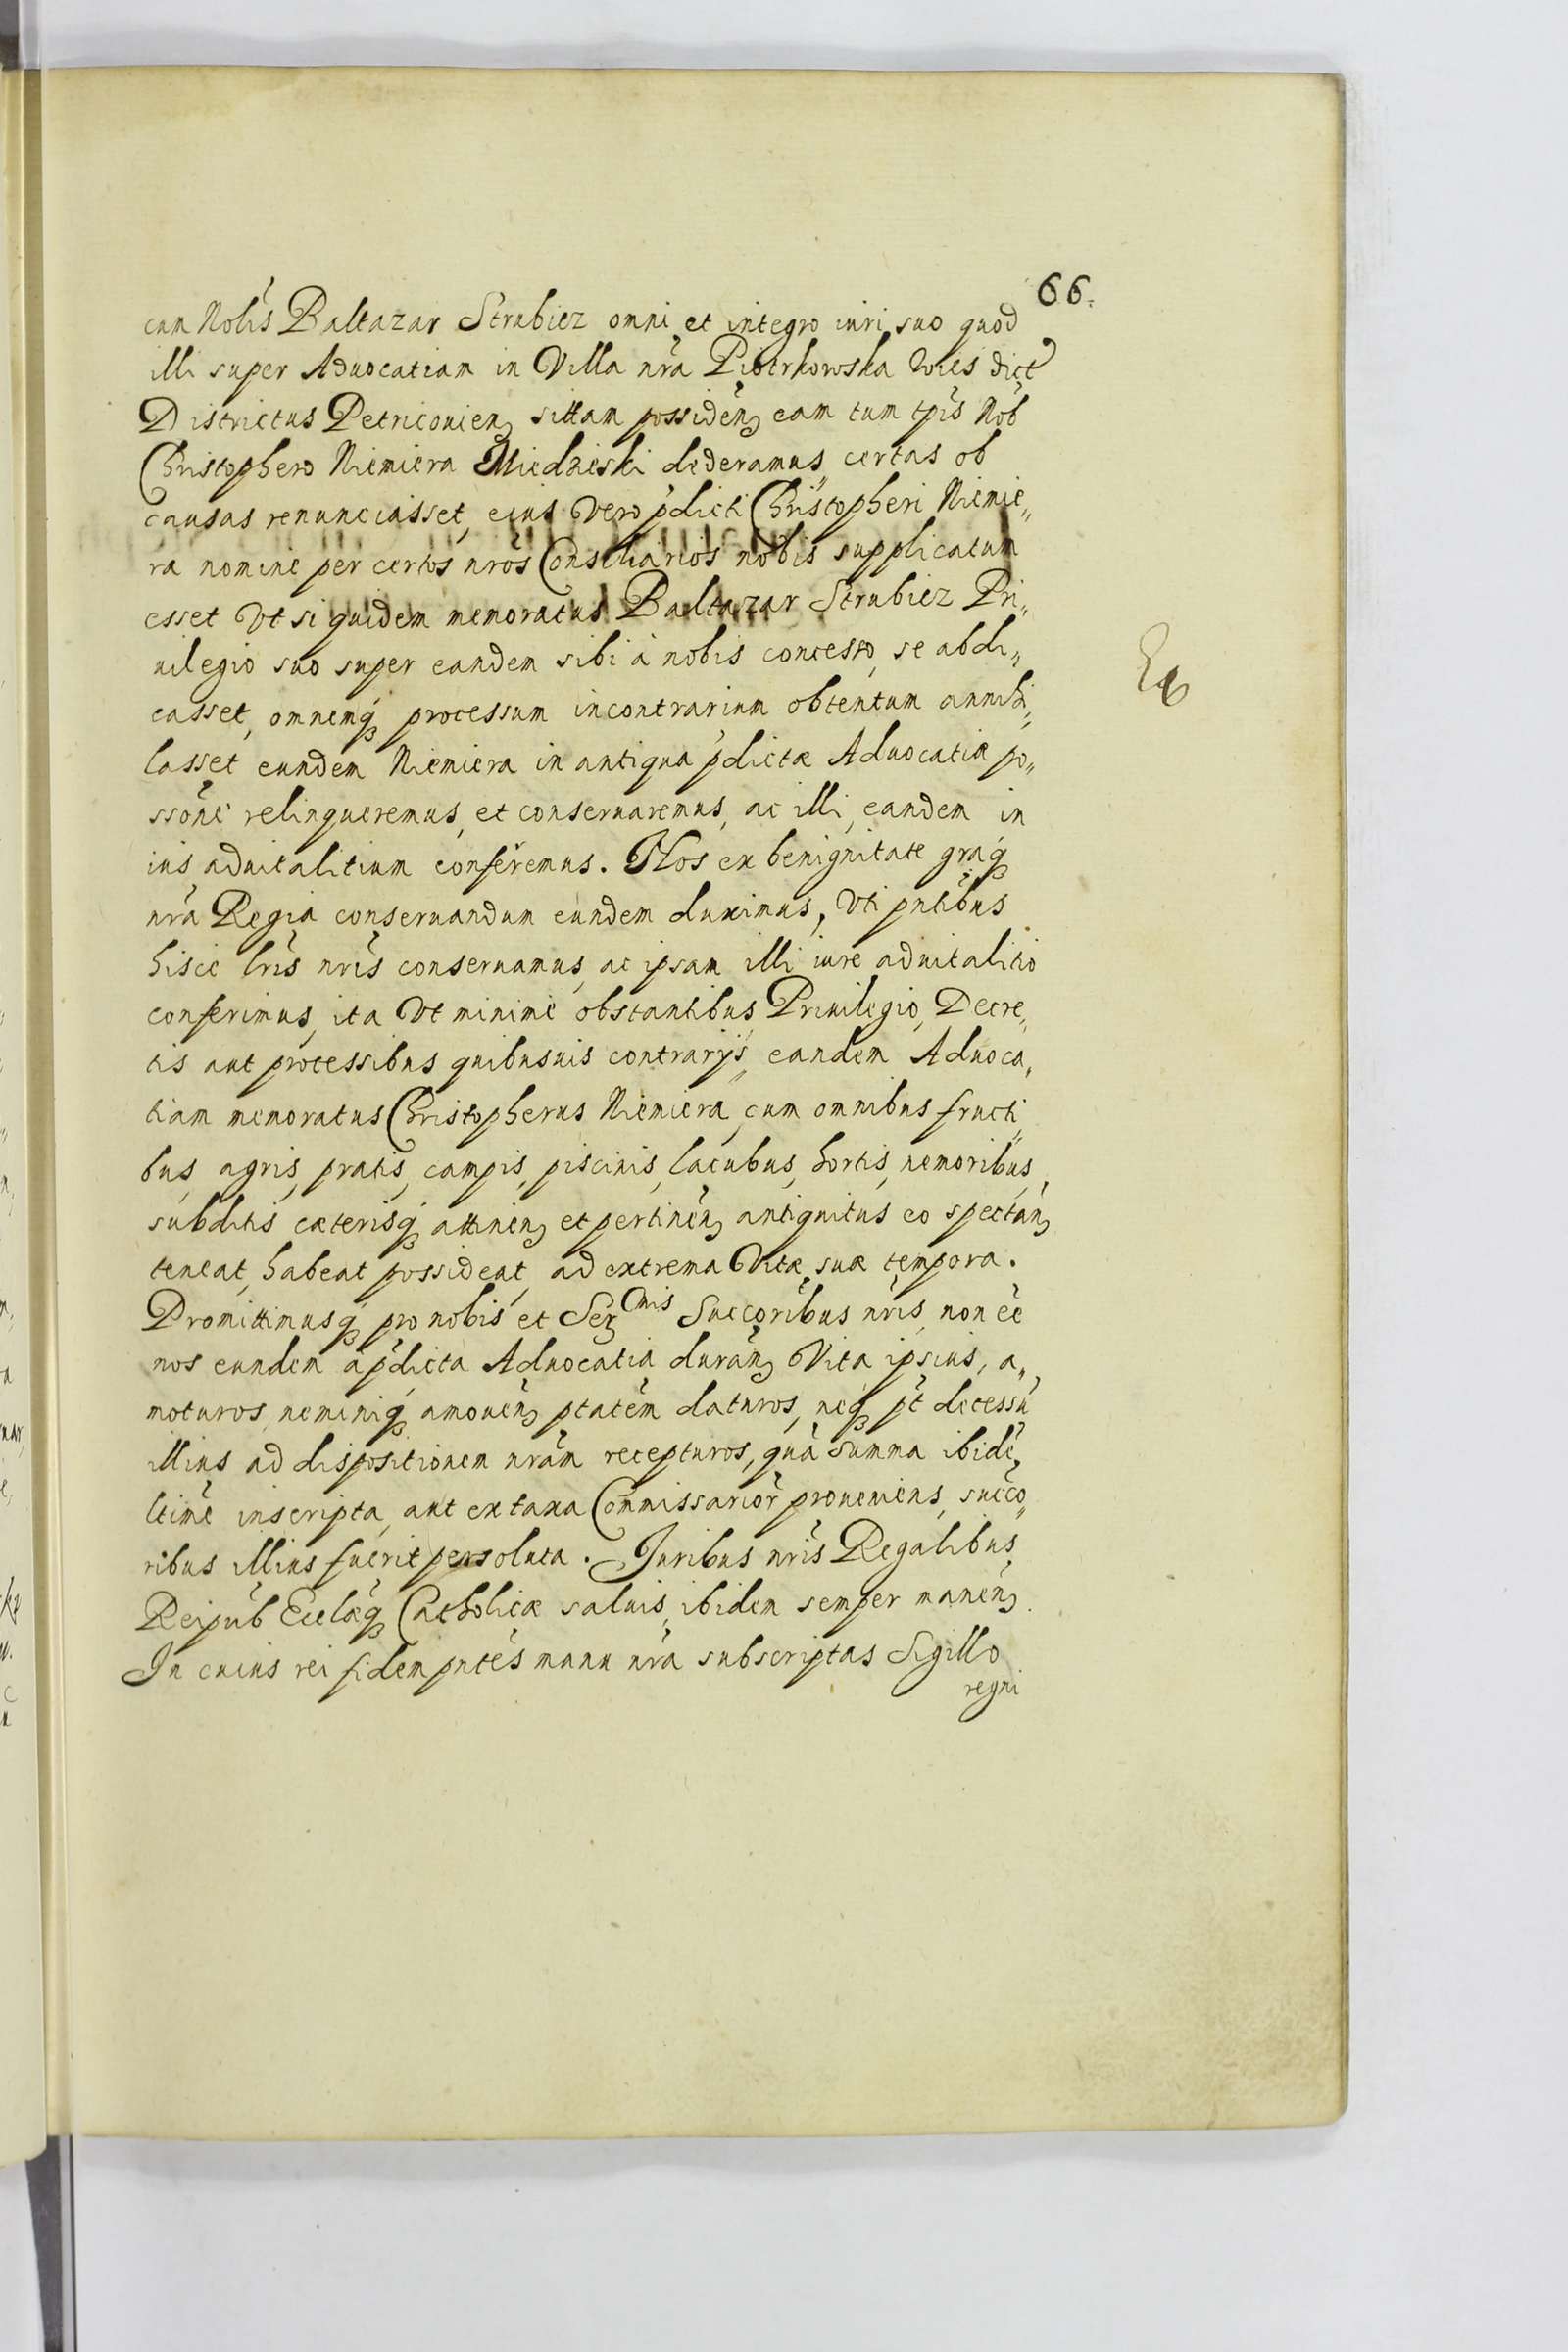 66.
cum Nolis Baltazar Strubicz omni et integro iuri suo quod
illi super Aduocatiam in Villa nra Piotrkowska Wies dict
Districtus Petricouien sittam possiden eam tum tpis Nob
Christophero Niemiera Miedzieski dederamus certas ob
causas renunciasset, eius Vero pdicti Christopheri Niemie„
ra nomine per certos nros Consiliarios nobis supplicatum
esset Vt si quidem memoratus Baltazar Strubicz Pri„
uilegio suo super eandem sibi à nobis concesso, se abdi„
casset, omnemq processum incontrarium obtentum annihi„
lasset eundem Niemiera in antiqua pdictæ Aduocatiæ po„
ssone relinqueremus, et conseruaremus, ac illi, eandem in
ius aduitalitium conferemus. Nos ex benignitate graq
nra Regia conseruandum eundem duximus, Vti pntibus
hisce lris nris conseruamus, ac ipsam illi iure aduitalitio
conferimus, ita Vt minime obstantibus Priuilegio, Decre„
tis aut processibus quibusuis contrarijs, eandem Aduoca„
tiam memoratus Christopherus Niemiera, cum omnibus fructi„
bus, agris, pratis, campis, piscinis, lacubus, hortis, nemoribus,
subditis cæterisq attinen et pertinen antiquitus eo spectan
teneat, habeat possideat, ad extrema Vitæ suæ tempora.
Promittimusq pro nobis et Ser mis Succoribus nris, non ee
nos eundem a pdicta Aduocatia duran Vita ipsius, a„
moturos, neminiq amouen ptatem daturos, neq pt decessu
illius ad dispositionem nram recepturos, qua summa ibide
ltime inscripta, aut ex taxa Commissarior proueniens, succo„
ribus illius fuerit persoluta. Juribus nris Regalibus
Reipub Ecclæq Catholicæ saluis, ibidem semper manen.
In cuius rei fidem pntes manu nra subscriptas Sigillo
regni